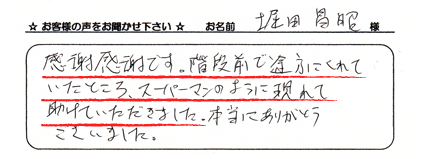 ☆ お客様の声をお聞かせ下さい ☆ お名前 堀田昌昭 様
感謝感謝です。階段前で途方にくれて
いたところ、スーパーマンのように現れて
助けていただきました。本当にありがとう
ございました。